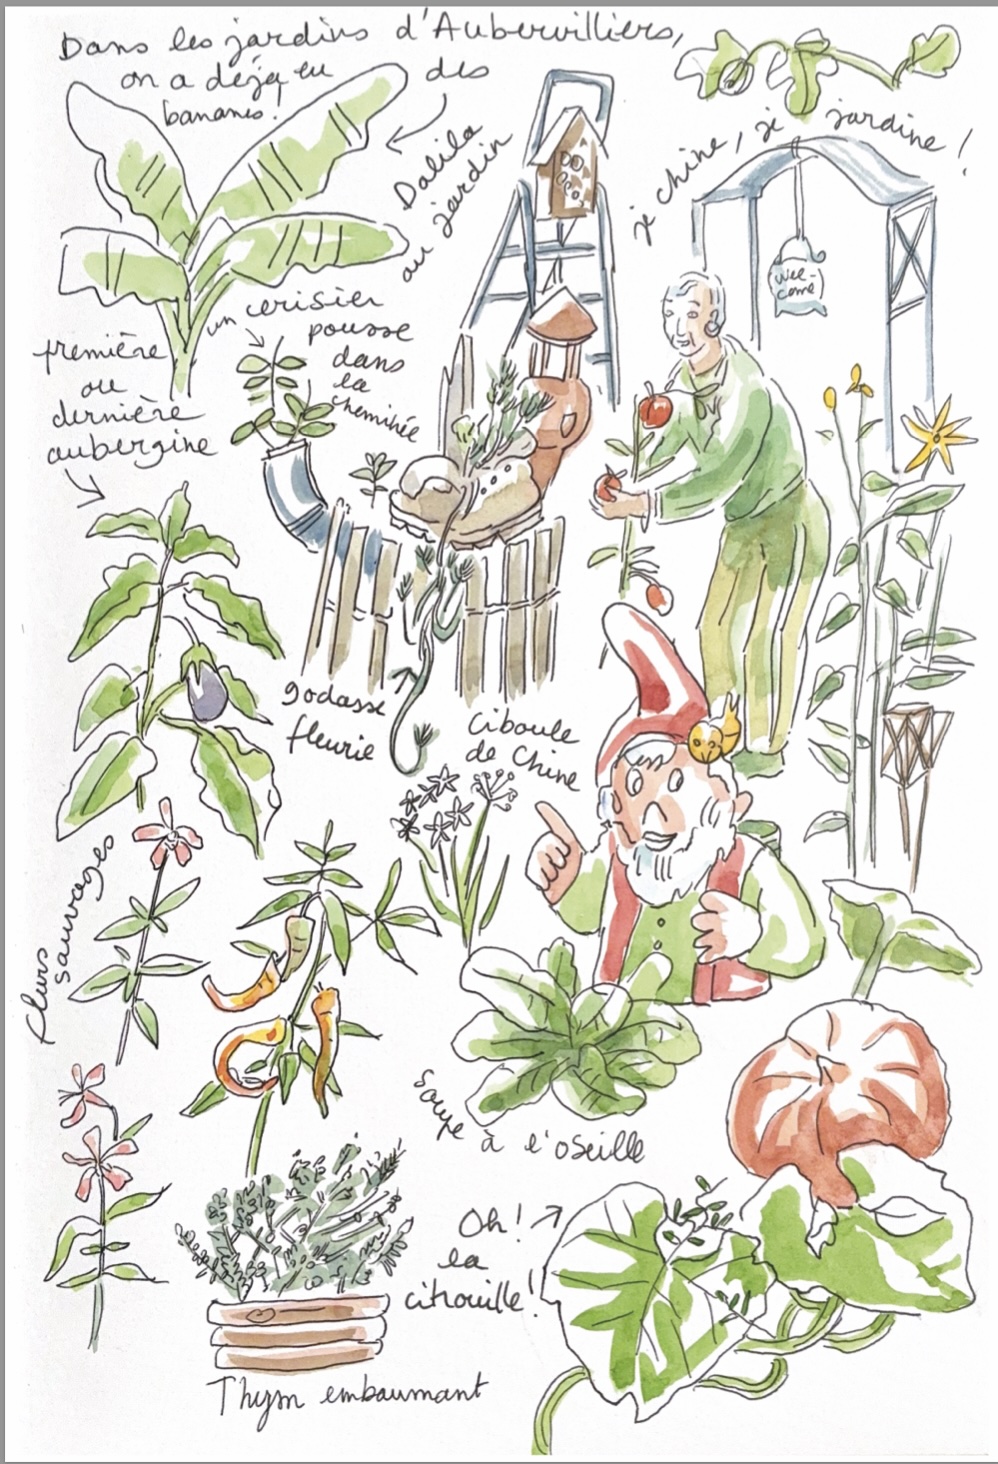 Dans les jardins d'Aubervilliers,
on a déjà eu des
bananes!
Dalila
au jardin
je chine, je jardine!
Wel-
come
un cerisier
pousse
dans
la
cheminée
première
ou
dernière
aubergine
godasse
fleurie
Ciboule
de Chine
fleurs
sauvages
Soupe à l'oseille
Oh!
la
citrouille!
Thym embaumant